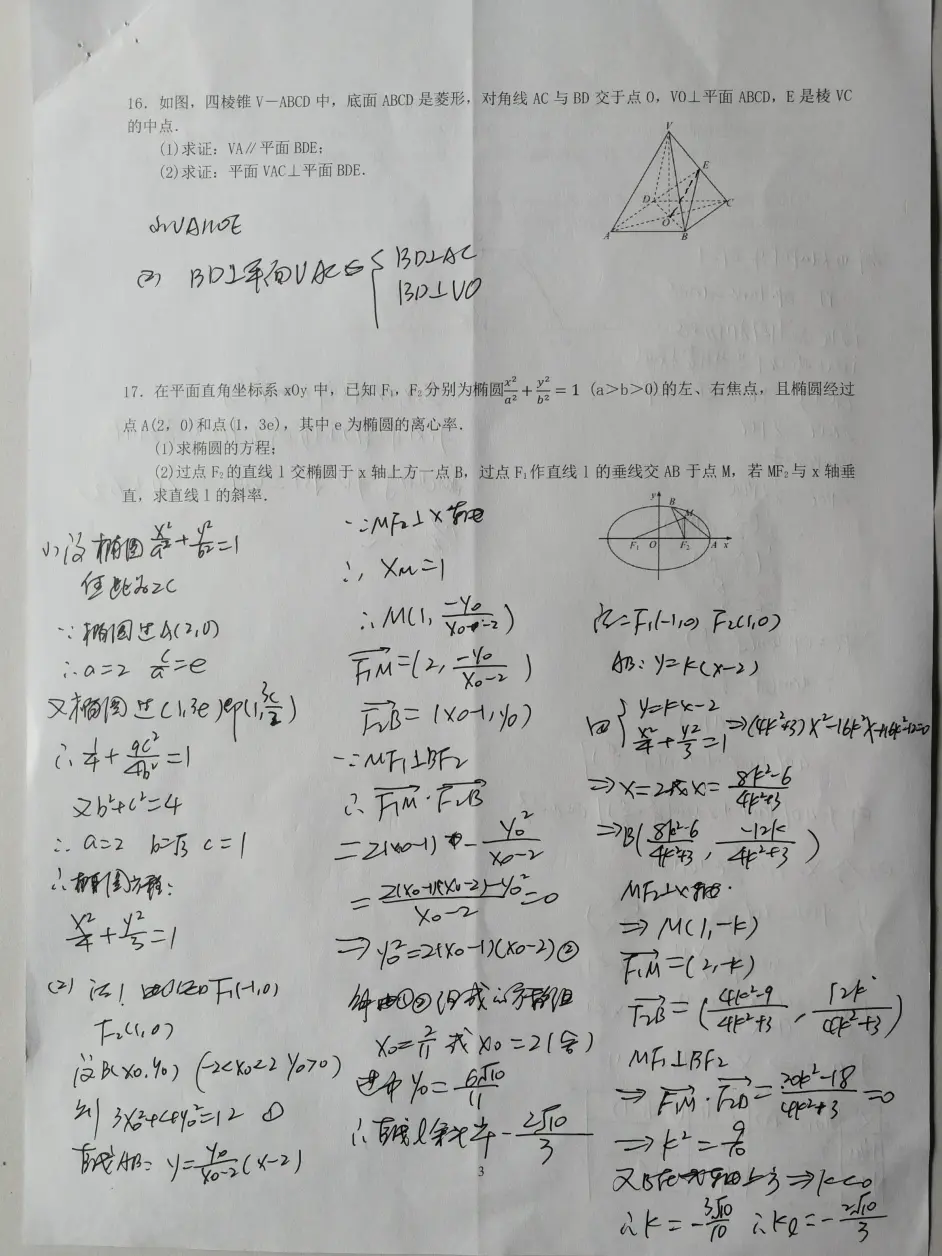 16. 如图，四棱锥 V－ABCD 中，底面 ABCD 是菱形，对角线 AC 与 BD 交于点 O，VO⊥平面 ABCD，E 是棱 VC
的中点.
(1)求证：VA∥平面 BDE；
(2)求证：平面 VAC⊥平面 BDE.
V
E
D
C
O
A
B
(1) VA∥OE
(2) BD⊥平面VAC⇐{BD⊥AC
BD⊥VO
17. 在平面直角坐标系 xOy 中，已知 F₁，F₂ 分别为椭圆x²/a²+y²/b²=1 (a＞b＞0)的左、右焦点，且椭圆经过
点 A(2，0)和点(1，3e)，其中 e 为椭圆的离心率.
(1)求椭圆的方程；
(2)过点 F₂的直线 l 交椭圆于 x 轴上方一点 B，过点 F₁作直线 l 的垂线交 AB 于点 M，若 MF₂与 x 轴垂
直，求直线 l 的斜率.
y
B
M
F₁
O
F₂
A
x
(1) 设椭圆x²/a²+y²/b²=1
焦距为2C
∵椭圆过A(2,0)
∴a=2 c/a=e
又椭圆过(1,3e)即(1,3c/2)
∴1/4+9c²/4b²=1
又b²+c²=4
∴a=2 b=√3 c=1
∴椭圆方程:
x²/4+y²/3=1
(2) 法1 由(1)知F₁(-1,0)
F₂(1,0)
设B(x₀,y₀) (-2<x₀<2 y₀>0)
则 3x₀²+4y₀²=12 ①
直线AB: y=y₀/(x₀-2)(x-2)
∵MF₂⊥x轴
∴xM=1
∴M(1, -y₀/(x₀-2))
F₁M=(2, -y₀/(x₀-2))
F₂B=(x₀-1,y₀)
∵MF₁⊥BF₂
∴F₁M·F₂B
=2(x₀-1)-y₀²/(x₀-2)
=(2(x₀-1)(x₀-2)-y₀²)/(x₀-2)=0
⇒y₀²=2(x₀-1)(x₀-2)②
①②组成的方程组
x₀=2/11或x₀=2(舍)
y₀=6√10/11
∴直线l斜率为-2√10/3
法二F₁(-1,0) F₂(1,0)
AB: y=k(x-2)
由{y=kx-2
x²/4+y²/3=1⇒(4k²+3)x²-16k²x+16k²-12=0
⇒x=2或x=(8k²-6)/(4k²+3)
⇒B((8k²-6)/(4k²+3), -12k/(4k²+3))
MF₂⊥x轴.
⇒M(1,-k)
F₁M=(2,-k)
F₂B=((4k²-9)/(4k²+3), -12k/(4k²+3))
MF₁⊥BF₂
⇒F₁M·F₂B=(20k²-18)/(4k²+3)=0
⇒k²=9/10
又B在x轴上方⇒k<0
∴k=-3√10/10 ∴kl=-2√10/3
3